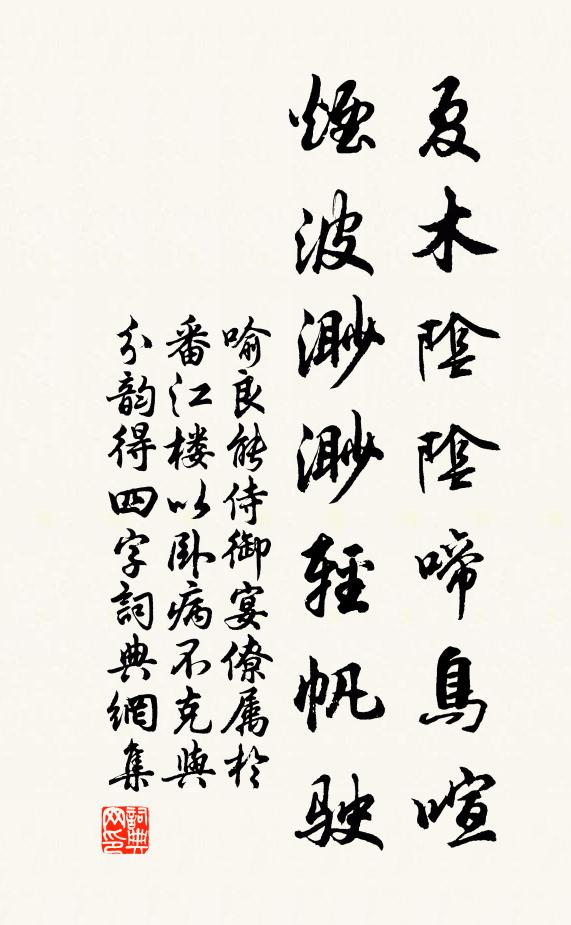 夏木陰陰啼鳥喧
煙波渺渺輕帆駛
喻良能侍御宴僚属於
番江楼以卧病不克與
分韵得四字詞典網集
詞典网印